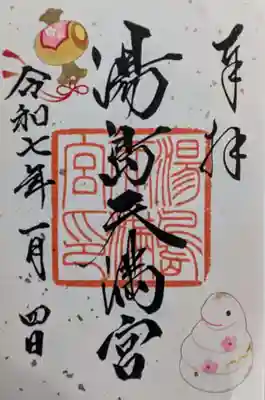 奉拝
湯島天満宮
令和七年一月四日
湯島
天満
宮印